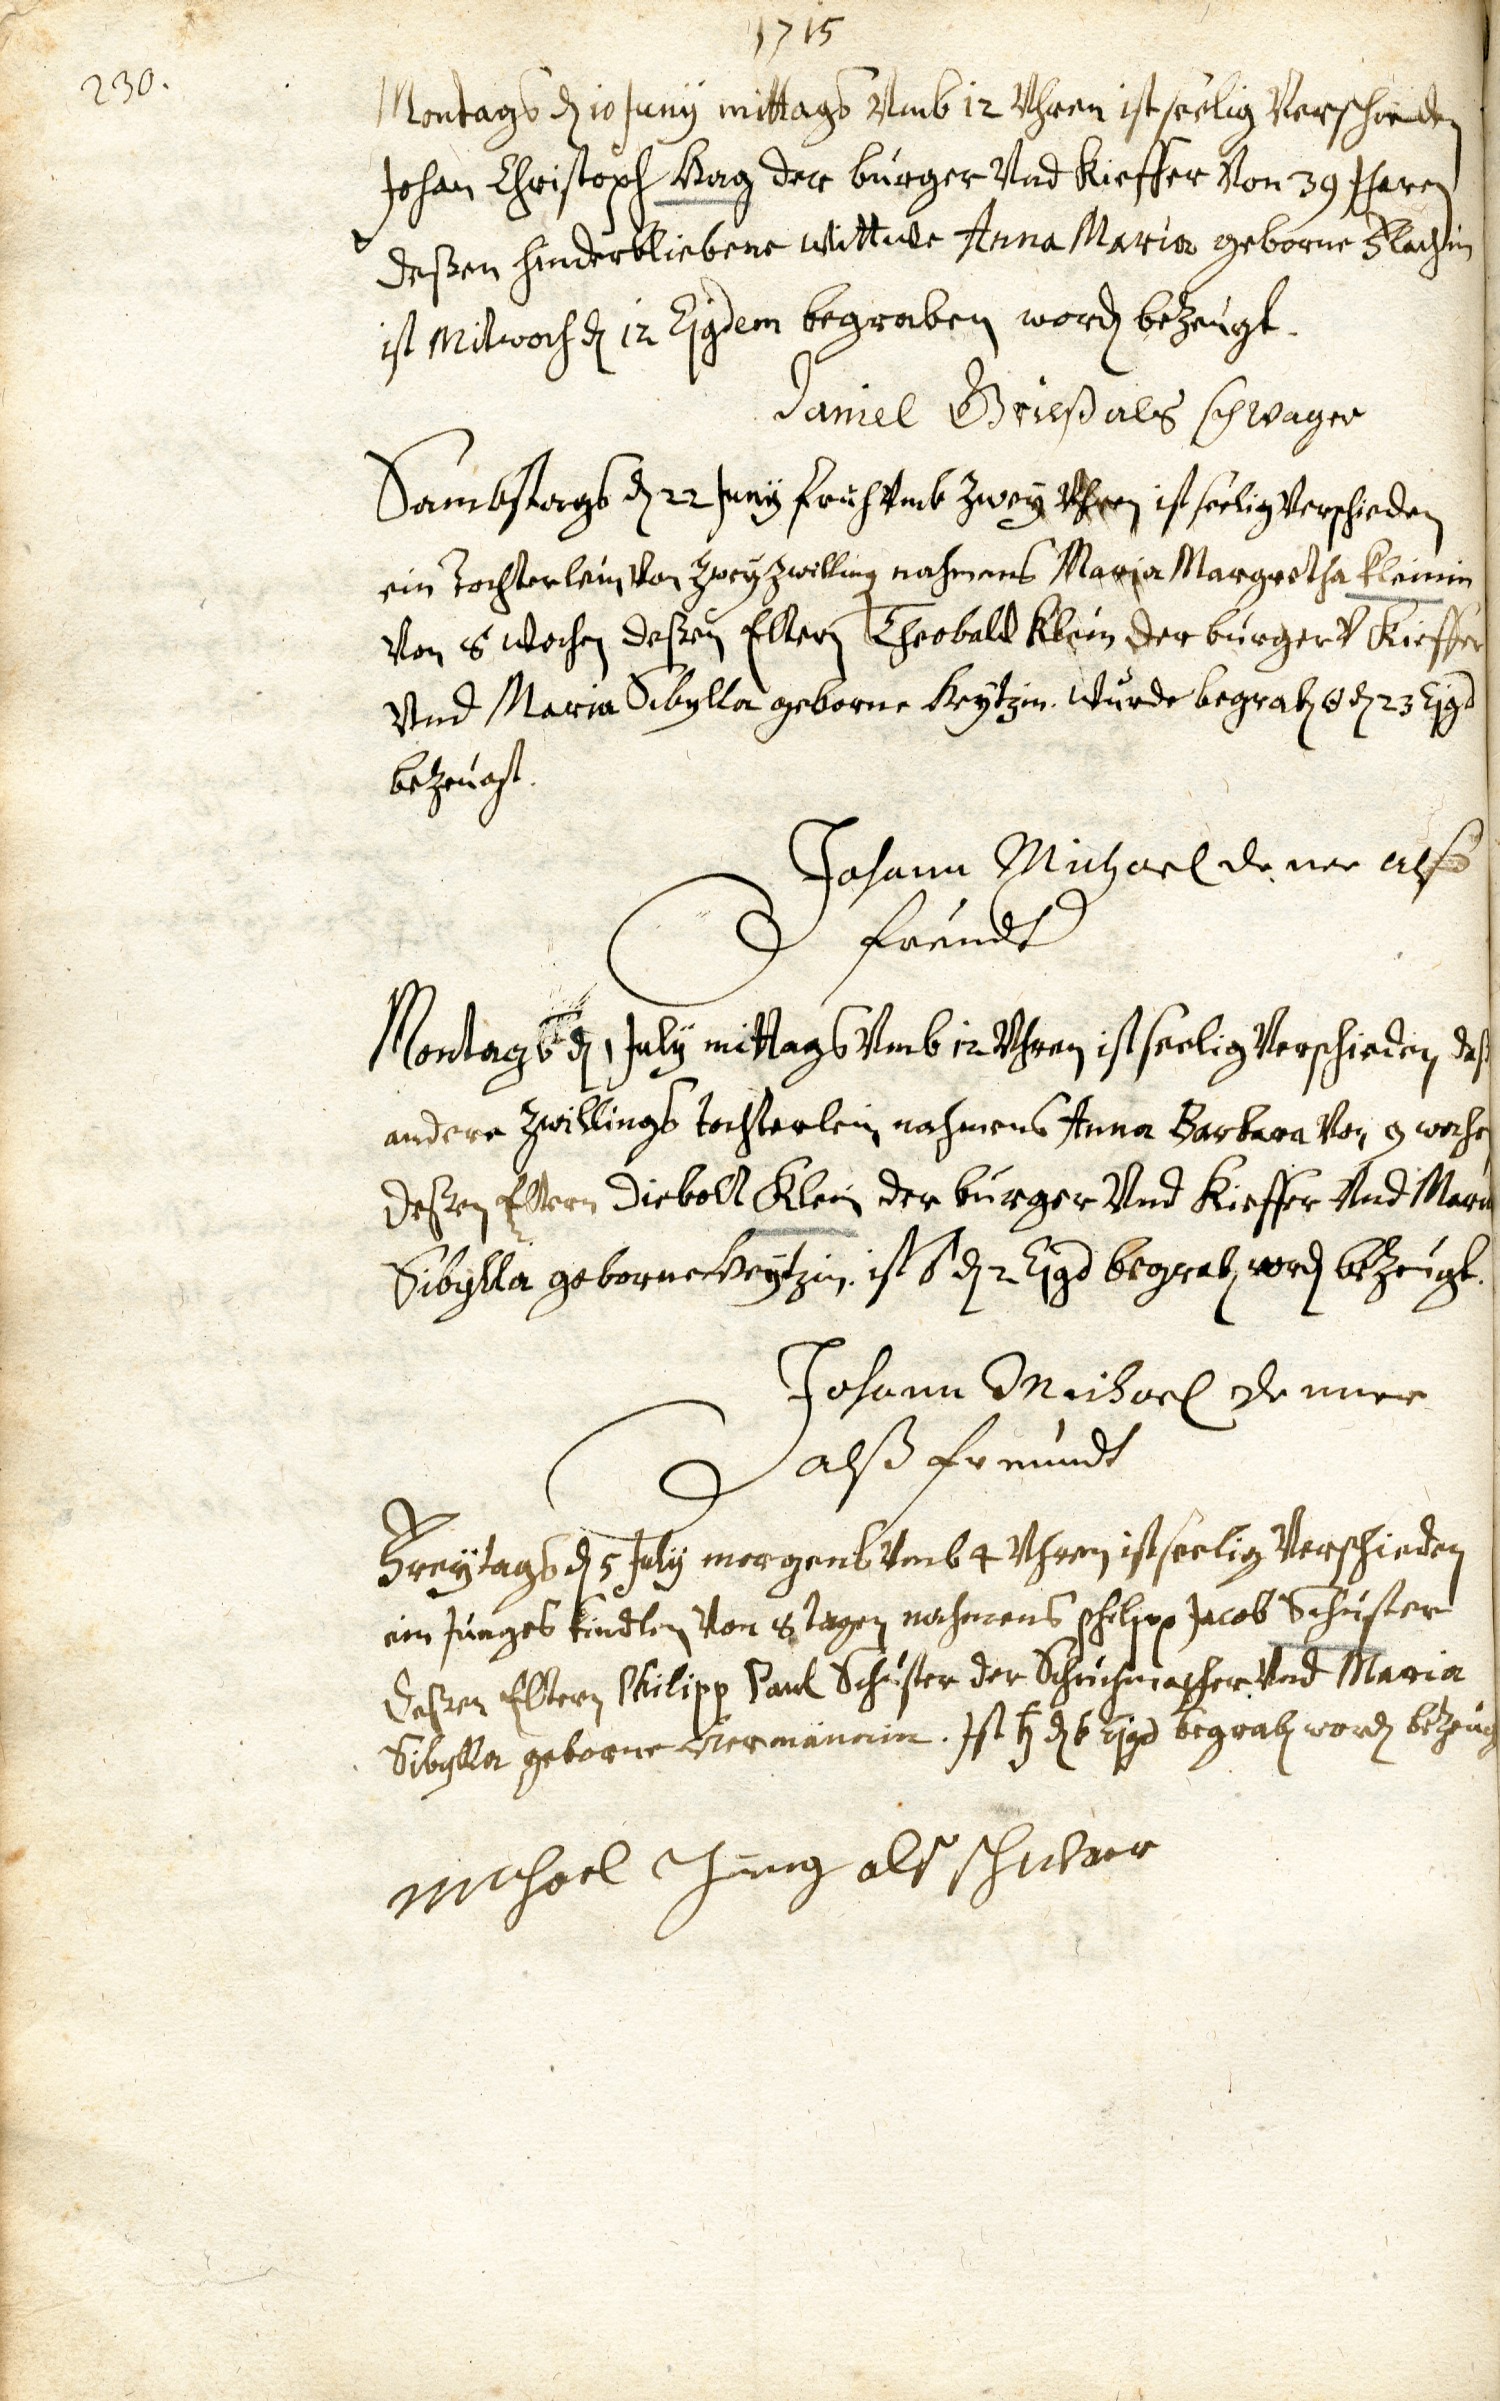 1715
230.
Montags dn 10 Juny mittags Vmb 12 Vhren ist seelig Verschieden
Johan Christoph Hag der burger Vnd Kieffer Von 39 Jharen
deßen hinderbliebene wittwe Anna Maria geborne Flachin
ist Mitwoch dn 12 Ejgdem begraben word bezeugt.
Daniel Grieß als schwager
Sambstags dn 22 Juny fruh Vmb zwey Vhren ist seelig Verschieden
ein Tochterlein Von zwey zwilling nahmens Maria Margretha Kleinin
Von 8 wochen deßen Eltern Theobald Klein der burger V Kieffer
Vnd Maria Sibylla geborne Keytzin. wurde begrab dn 23 Ejgd
bezeugt.
Johann Michael demer alß
freundt
Montags dn 1 July mittags Vmb 12 Vhren ist seelig Verschieden daß
andere zwillings tochterlein nahmens Anna Barbara Von 9 wochen
deßen Eltern Diebolt Klein der burger Vnd Kieffer Vnd Maria
Sibylla geborne Keytzin. ist dn 2 Ejgd begrab word bezeugt.
Johann Michael demer
alß freundt
Freytags dn 5 July morgens Vmb 4 Vhren ist seelig Verschieden
ein junges Kindlen Von 8 tagen nahmens philipp Jacob Schuster
deßen Eltern Philipp Paul Schuster der Schuhmacher Vnd Maria
Sibylla geborne. Ist ♄ dn 6 ejgd begrab word bezeug
Michael Jung als schwaer